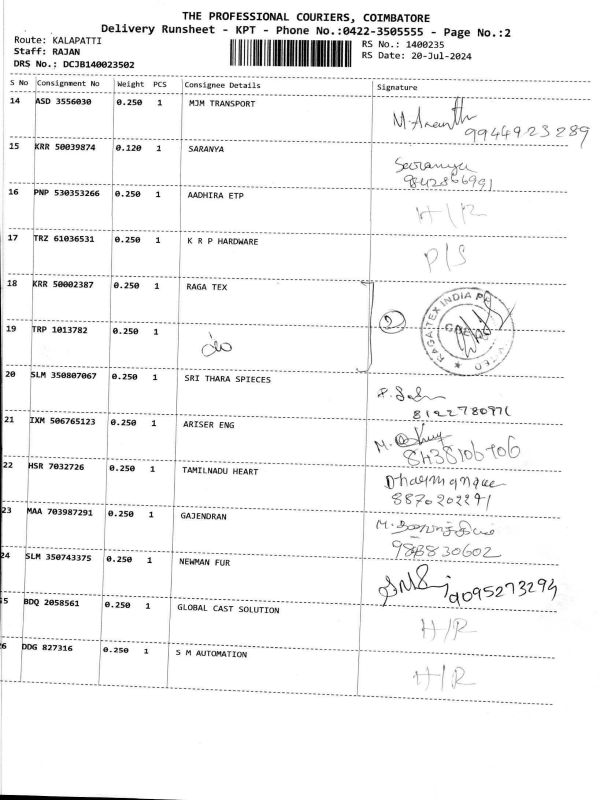 THE PROFESSIONAL COURIERS, COIMBATORE
Delivery Runsheet - KPT - Phone No.:0422-3505555 - Page No.:2
Route: KALAPATTI
Staff: RAJAN
DRS No.: DCJB140023502
RS No.: 1400235
RS Date: 20-Jul-2024
S No Consignment No Weight PCS Consignee Details Signature
14 ASD 3556030 0.250 1 MJM TRANSPORT M.
9944923289
15 KRR 50039874 0.120 1 SARANYA Saranya
9842866991
16 PNP 530353266 0.250 1 AADHIRA ETP H/R
17 TRZ 61036531 0.250 1 K R P HARDWARE P/S
18 KRR 50002387 0.250 1 RAGA TEX
2 RAGA TEX INDIA
19 TRP 1013782 0.250 1
20 SLM 350807067 0.250 1 SRI THARA SPIECES
8122780971
21 IXM 506765123 0.250 1 ARISER ENG M.
8438106706
22 HSR 7032726 0.250 1 TAMILNADU HEART
8870202291
23 MAA 703987291 0.250 1 GAJENDRAN M.
24 SLM 350743375 0.250 1 NEWMAN FUR
9095273294
5 BDQ 2058561 0.250 1 GLOBAL CAST SOLUTION H/R
6 DDG 827316 0.250 1 S M AUTOMATION H/R